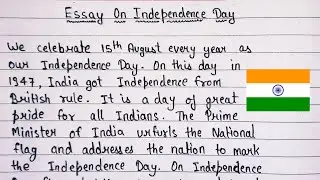 Essay On Independence Day
We celebrate 15th August every year as
our Independence Day. On this day in
1947, India got Independence from
British rule. It is a day of great
pride for all Indians. The Prime
Minister of India unfurls the National
flag and addresses the nation to mark
the Independence Day. On Independence